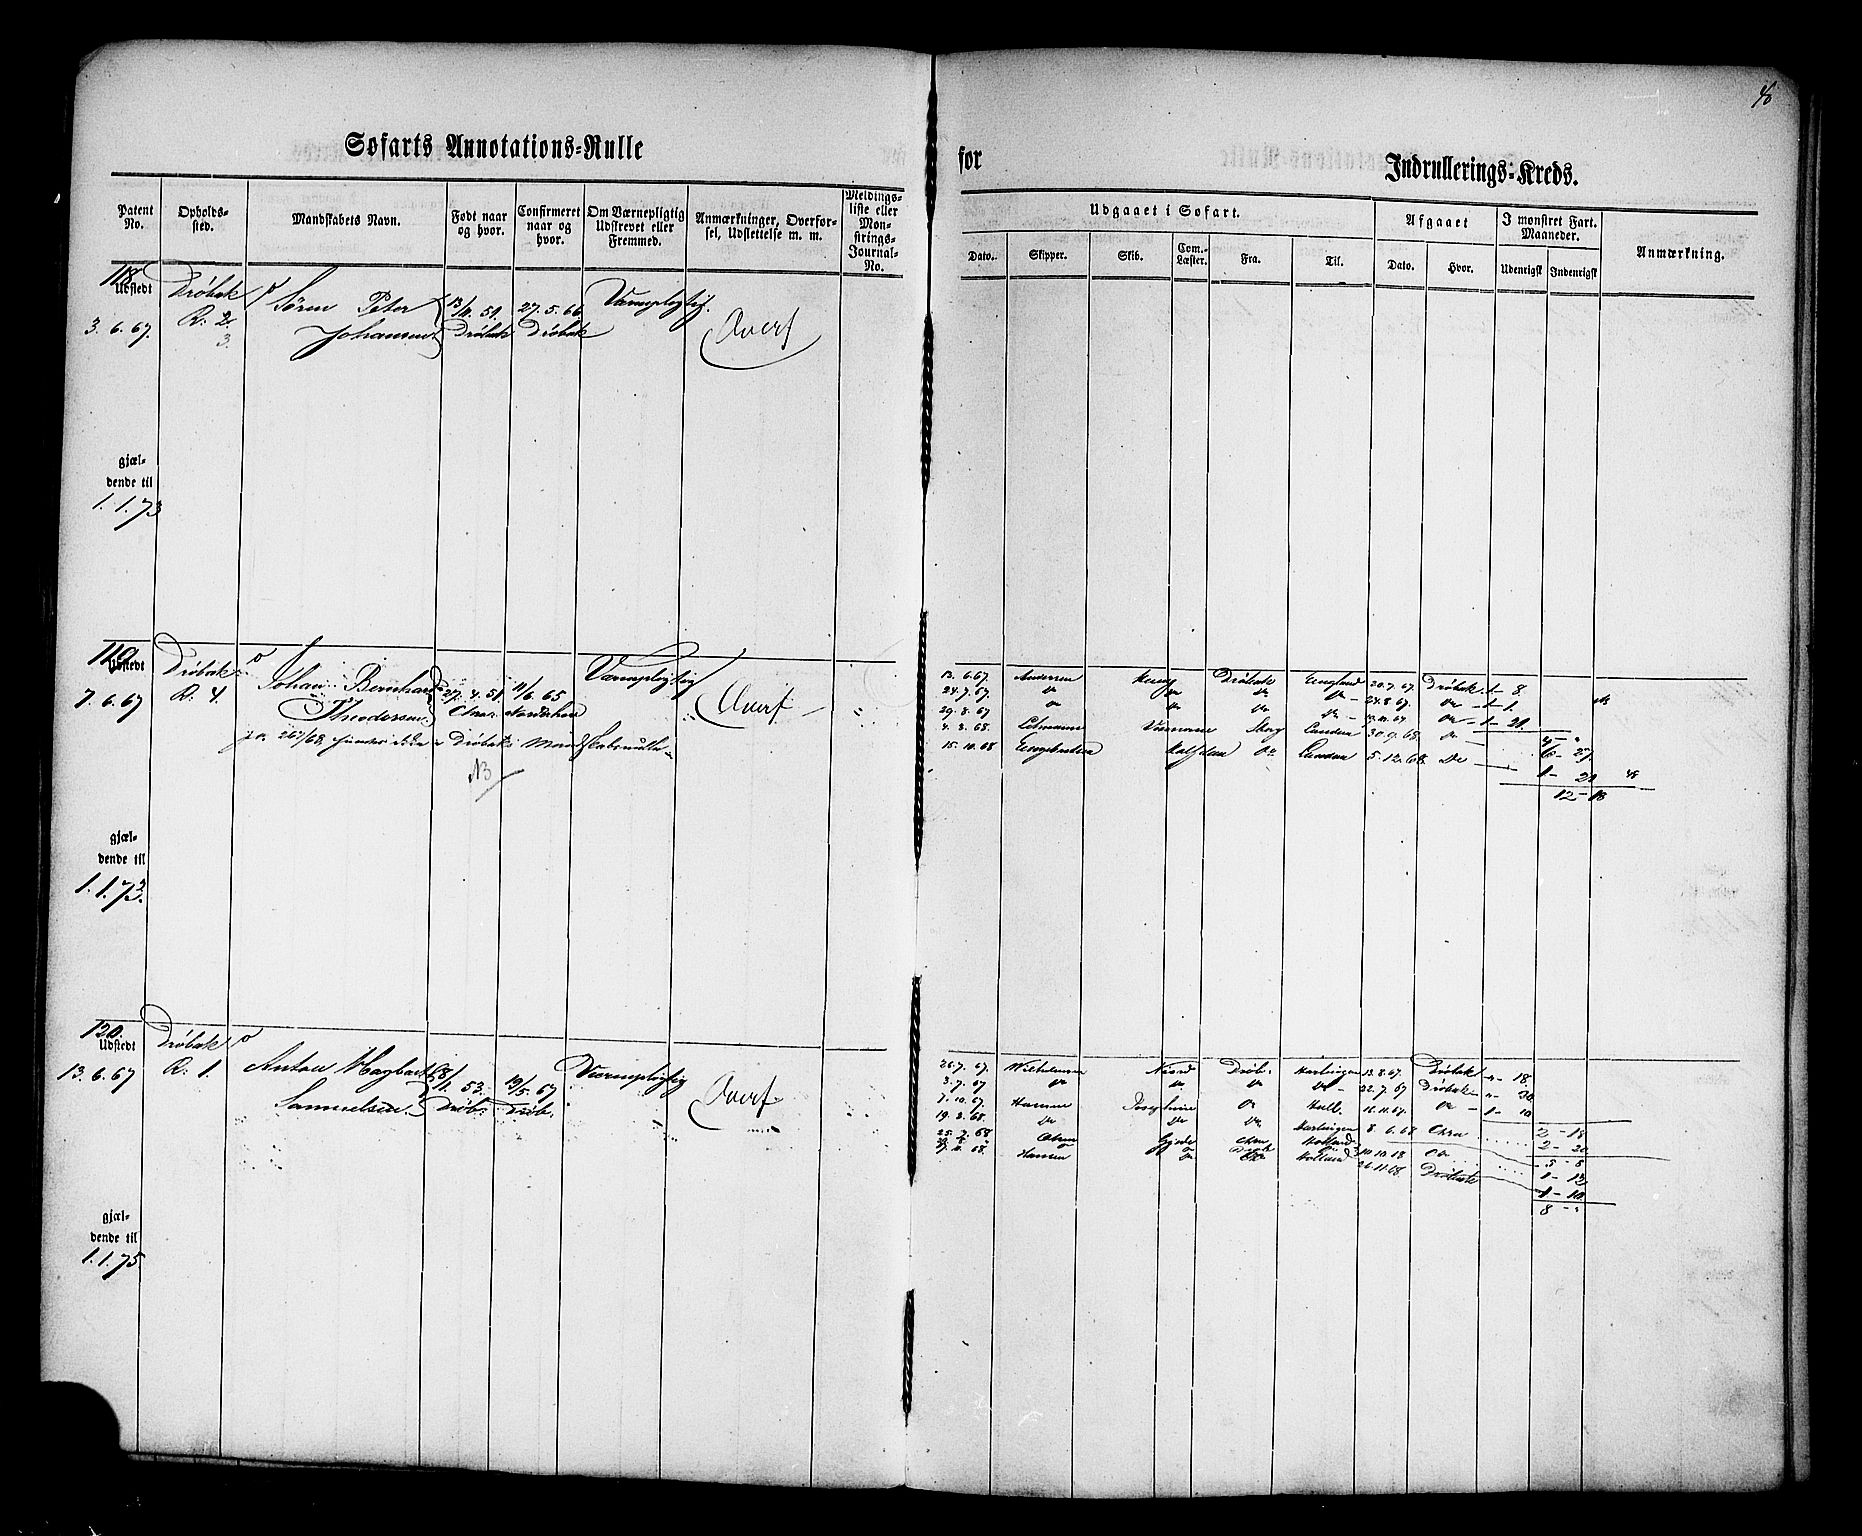 40
Søfarts Annotations-Rulle for Indrullerings-Kreds.
Patent No.
Opholds-sted.
Mandskabets Navn.
Født naar og hvor.
Confirmeret naar og hvor.
Om Værnepligtig Udskrevet eller Fremmed.
Anmærkninger, Overførsel, Udslettelse m. m.
Meldings-liste eller Mon-strings-Journal-No.
Udgaaet i Søfart.
Afgaaet
I mønstret Fart. Maaneder.
Anmærkning.
Dato. Skipper. Skib. Com.-Læster. Fra. Til. Dato. Hvor. Udenrigsk Indenrigsk
118. Drøbak Søren Peter 13/11 51. 27.5.66. Værnepligtig.
Udstedt
3.6.67. R: 2. Johansen Drøbak Drøbak Overf
3.
gjæl-
dende til
1.1.73
119. Drøbak Johan Bernhard 27.4.51 11/6 65 Værnepligtig
Udstedt
7.6.67 R: 4. Theodorsen Overf
267/68 Drøbaks
NB
gjæl-
dende til
1.1.73.
13.6.67. Andersen Drøbak England 20.7.67. Drøbak 1 - 8.
24.7.67. Do Do Do Do - 24.8.67 Do - 1 - 1.
29.8.67 Do Do Do Do - Do - 1 - 21.
4.3.68. London 30.9.68. Do 4 - "
15.10.68 Engebretsen Halfdan Do London 5.12.68 Do 6 - 27.
1 - 21
12 - 18
120. Drøbak Anton Hagbart 8/11 53. 19/5 67 Værnepligtig
Udstedt
13.6.67 R: 1. Samuelsen Drøb. Drøb. Overf
gjæl-
dende til
1.1.75
26.7.67. Wilhelmsen Njord Drøb. Harlingen 13.8.67. Drøbak " - 18.
3.7.67 Do Do Do Do - 22.7.67 Drøbak " - 20.
7.10.67. Hansen Josephine Do Hull. 16.11.67. Do - 1 - 10
19.3.68. Do Do Do Harlingen 8.6.68 Chra 2 - 18
25.7.68 Olsen Chra Holland 10.10.68 Do 2 - 20
Hansen Do Holland 26.11.68 Drøbak 5 - 8
1 - 12
1 - 10
8 - "